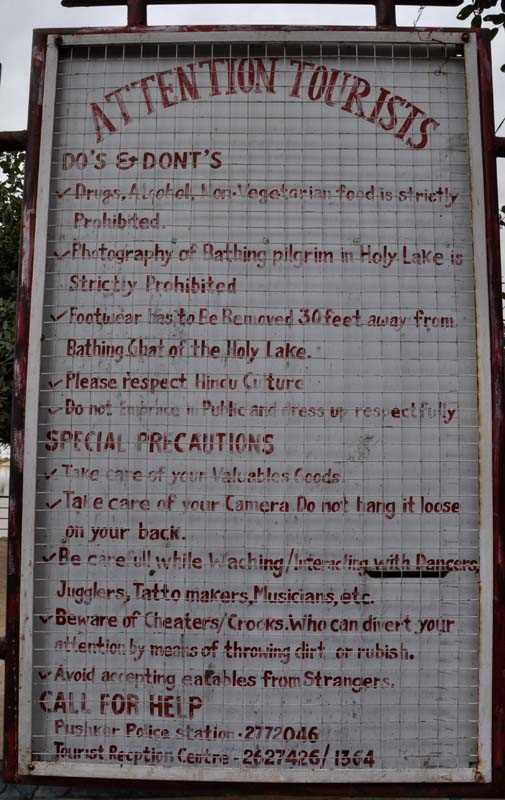 ATTENTION TOURISTS
DO'S & DONT'S
✓ Drugs, Alcohol, Non-Vegetarian food is strictly
Prohibited.
✓ Photography of Bathing pilgrim in Holy Lake is
Strictly Prohibited
✓ Footwear has to Be Removed 30 feet away from
Bathing Ghat of the Holy Lake.
✓ Please respect Hindu Culture
✓ Do not Embrace in Public and dress up respectfully
SPECIAL PRECAUTIONS
✓ Take care of your Valuables Goods.
✓ Take care of your Camera. Do not hang it loose
on your back.
✓ Be carefull while Waching/Interacting with Dancers,
Jugglers, Tatto makers, Musicians, etc.
✓ Beware of Cheaters/Crooks. Who can divert your
attention by means of throwing dirt or rubish.
✓ Avoid accepting eatables from Strangers.
CALL FOR HELP
Pushkar Police station - 2772046
Tourist Recption Centre - 2627426/1364